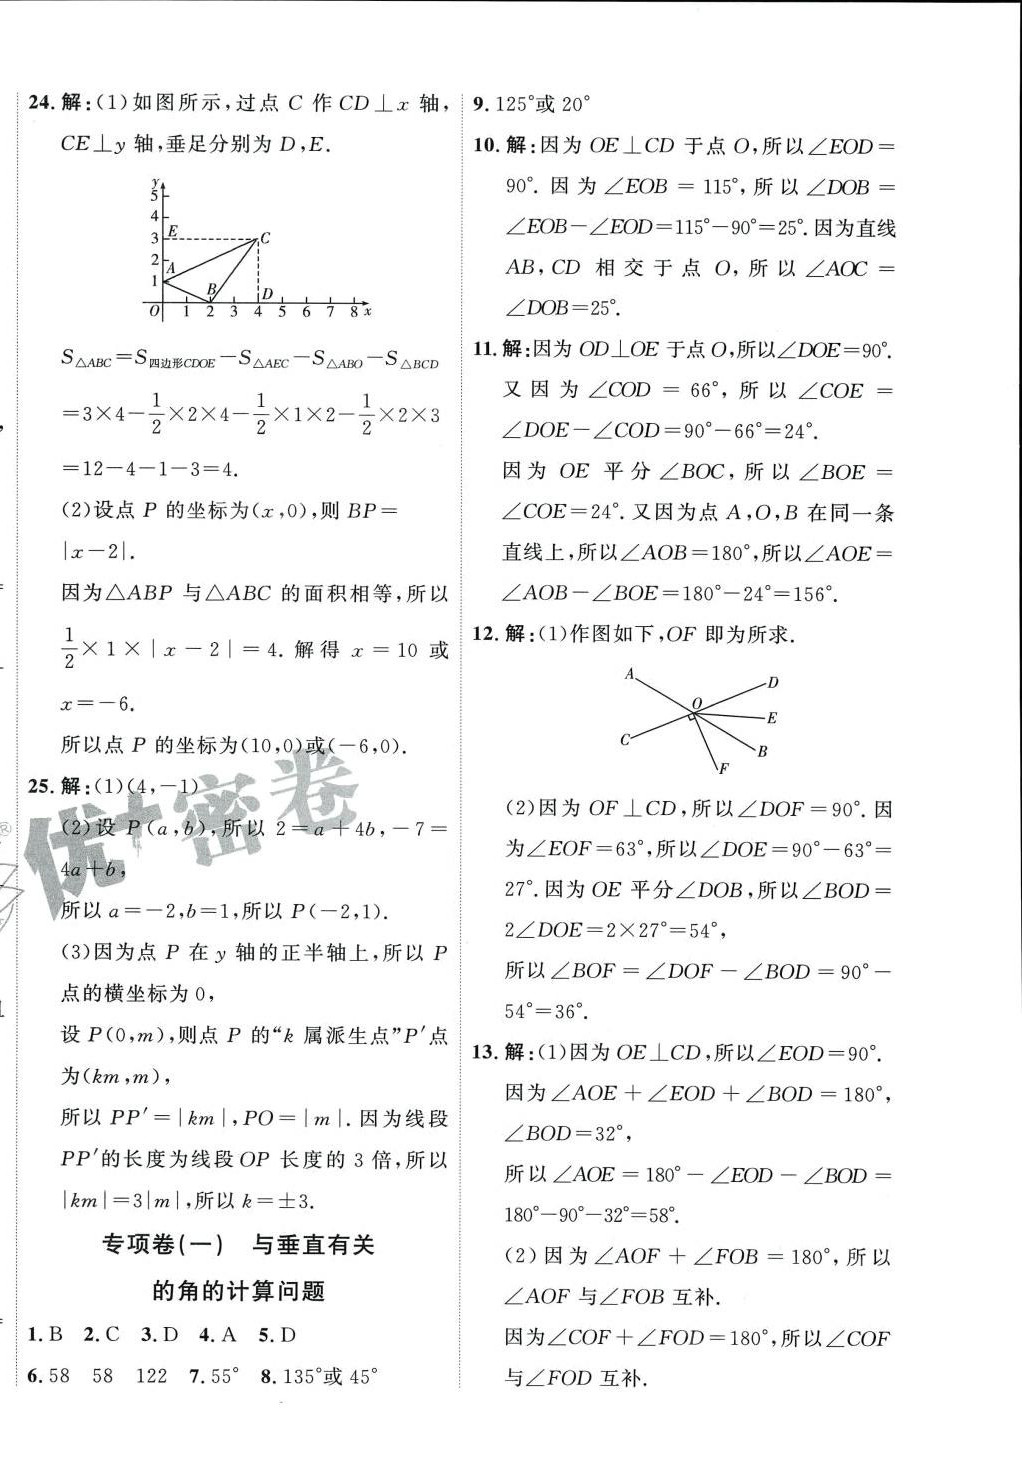 24. 解:(1)如图所示,过点 C 作 CD⊥x 轴,
CE⊥y 轴,垂足分别为 D,E.
y
5
4
3 E C
2
1 A
B D
O 1 2 3 4 5 6 7 8 x
S△ABC=S四边形CDOE－S△AEC－S△ABO－S△BCD
=3×4－1/2×2×4－1/2×1×2－1/2×2×3
=12－4－1－3=4.
(2)设点 P 的坐标为(x,0),则 BP=
|x－2|.
因为△ABP 与△ABC 的面积相等,所以
1/2×1×|x－2|=4. 解得 x=10 或
x=－6.
所以点 P 的坐标为(10,0)或(－6,0).
25. 解:(1)(4,－1)
(2)设 P(a,b),所以 2=a+4b,－7=
4a+b,
所以 a=－2,b=1,所以 P(－2,1).
(3)因为点 P 在 y 轴的正半轴上,所以 P
点的横坐标为 0,
设 P(0,m),则点 P 的“k 属派生点”P′点
为(km,m),
所以 PP′=|km|,PO=|m|. 因为线段
PP′的长度为线段 OP 长度的 3 倍,所以
|km|=3|m|,所以 k=±3.
专项卷(一) 与垂直有关
的角的计算问题
1. B 2. C 3. D 4. A 5. D
6. 58 58 122 7. 55° 8. 135°或 45°
9. 125°或 20°
10. 解:因为 OE⊥CD 于点 O,所以∠EOD=
90°. 因为∠EOB=115°,所以∠DOB=
∠EOB－∠EOD=115°－90°=25°. 因为直线
AB,CD 相交于点 O,所以∠AOC=
∠DOB=25°.
11. 解:因为 OD⊥OE 于点 O,所以∠DOE=90°.
又因为∠COD=66°,所以∠COE=
∠DOE－∠COD=90°－66°=24°.
因为 OE 平分∠BOC,所以∠BOE=
∠COE=24°. 又因为点 A,O,B 在同一条
直线上,所以∠AOB=180°,所以∠AOE=
∠AOB－∠BOE=180°－24°=156°.
12. 解:(1)作图如下,OF 即为所求.
A D
O
E
C B
F
(2)因为 OF⊥CD,所以∠DOF=90°. 因
为∠EOF=63°,所以∠DOE=90°－63°=
27°. 因为 OE 平分∠DOB,所以∠BOD=
2∠DOE=2×27°=54°,
所以∠BOF=∠DOF－∠BOD=90°－
54°=36°.
13. 解:(1)因为 OE⊥CD,所以∠EOD=90°.
因为∠AOE+∠EOD+∠BOD=180°,
∠BOD=32°,
所以∠AOE=180°－∠EOD－∠BOD=
180°－90°－32°=58°.
(2)因为∠AOF+∠FOB=180°,所以
∠AOF 与∠FOB 互补.
因为∠COF+∠FOD=180°,所以∠COF
与∠FOD 互补.
优+密卷